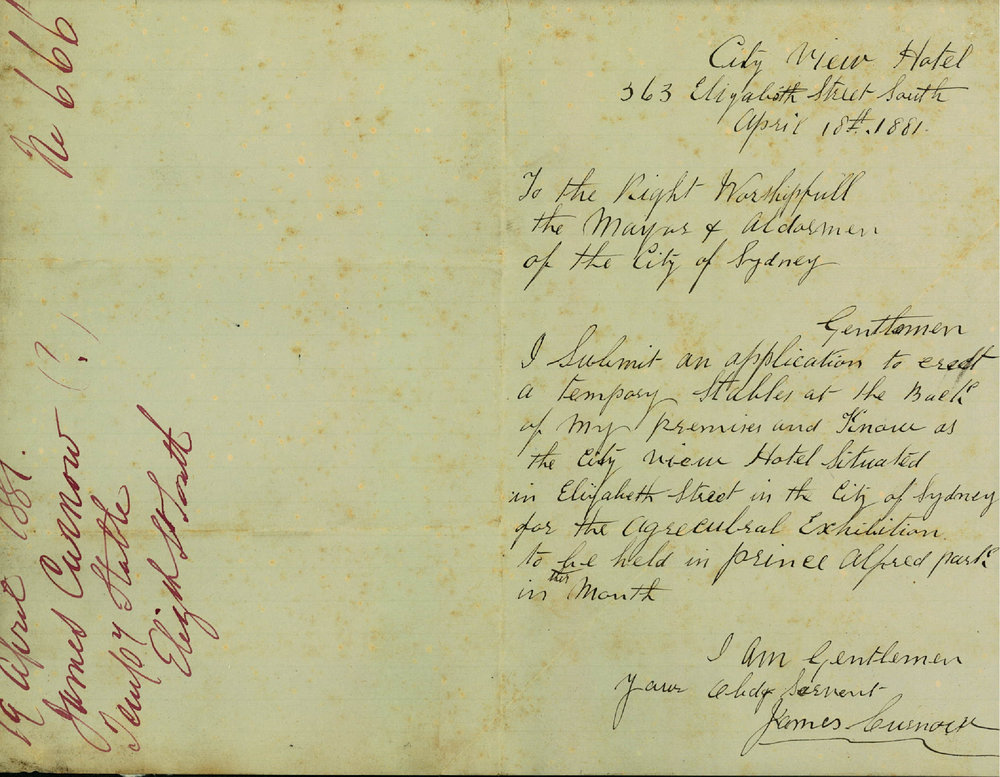 No 666
19 April 1881.
James Curnow (?)
Tempy Stable
Eliz. St South
City View Hotel
363 Elizabeth Street South
April 18th. 1881.
To the Right Worshipfull
the Mayor & Aldormen
of the City of Sydney
Gentlemen
I Submit an application to erect
a tempory Stables at the Back
of My premises and Know as
the City View Hotel Situated
in Elizabeth Street in the City of Sydney
for the Agrecutbral Exhibition
to be held in prince Alfred park
in this Month
I Am Gentlemen
Your Obdt Servent
James Curnow